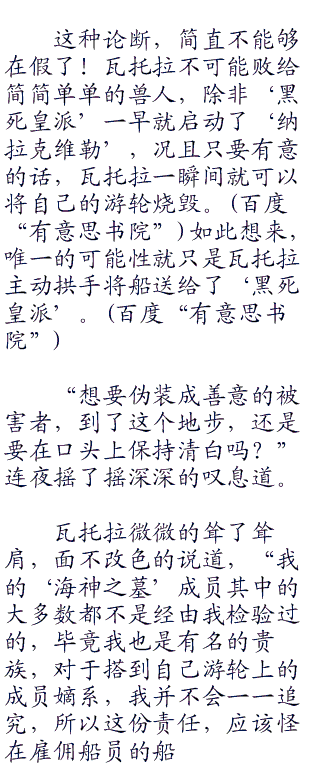 这种论断，简直不能够
在假了！瓦托拉不可能败给
简简单单的兽人，除非‘黑
死皇派’一早就启动了‘纳
拉克维勒’，况且只要有意
的话，瓦托拉一瞬间就可以
将自己的游轮烧毁。(百度
“有意思书院”)如此想来，
唯一的可能性就只是瓦托拉
主动拱手将船送给了‘黑死
皇派’。(百度“有意思书
院”)
“想要伪装成善意的被
害者，到了这个地步，还是
要在口头上保持清白吗？”
连夜摇了摇深深的叹息道。
瓦托拉微微的耸了耸
肩，面不改色的说道，“我
的‘海神之墓’成员其中的
大多数都不是经由我检验过
的，毕竟我也是有名的贵
族，对于搭到自己游轮上的
成员嫡系，我并不会一一追
究，所以这份责任，应该怪
在雇佣船员的船